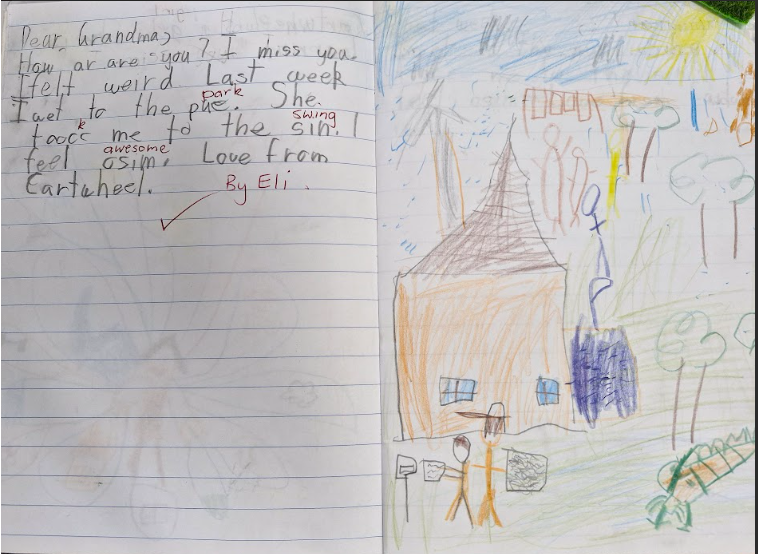 Dear Grandma,
How ar are you? I miss you.
I felt weird Last week
park
I wet to the pue. She.
swing
toock me to the sin. I
awesome
feel osim. Love from
Cartwheel.
By Eli.